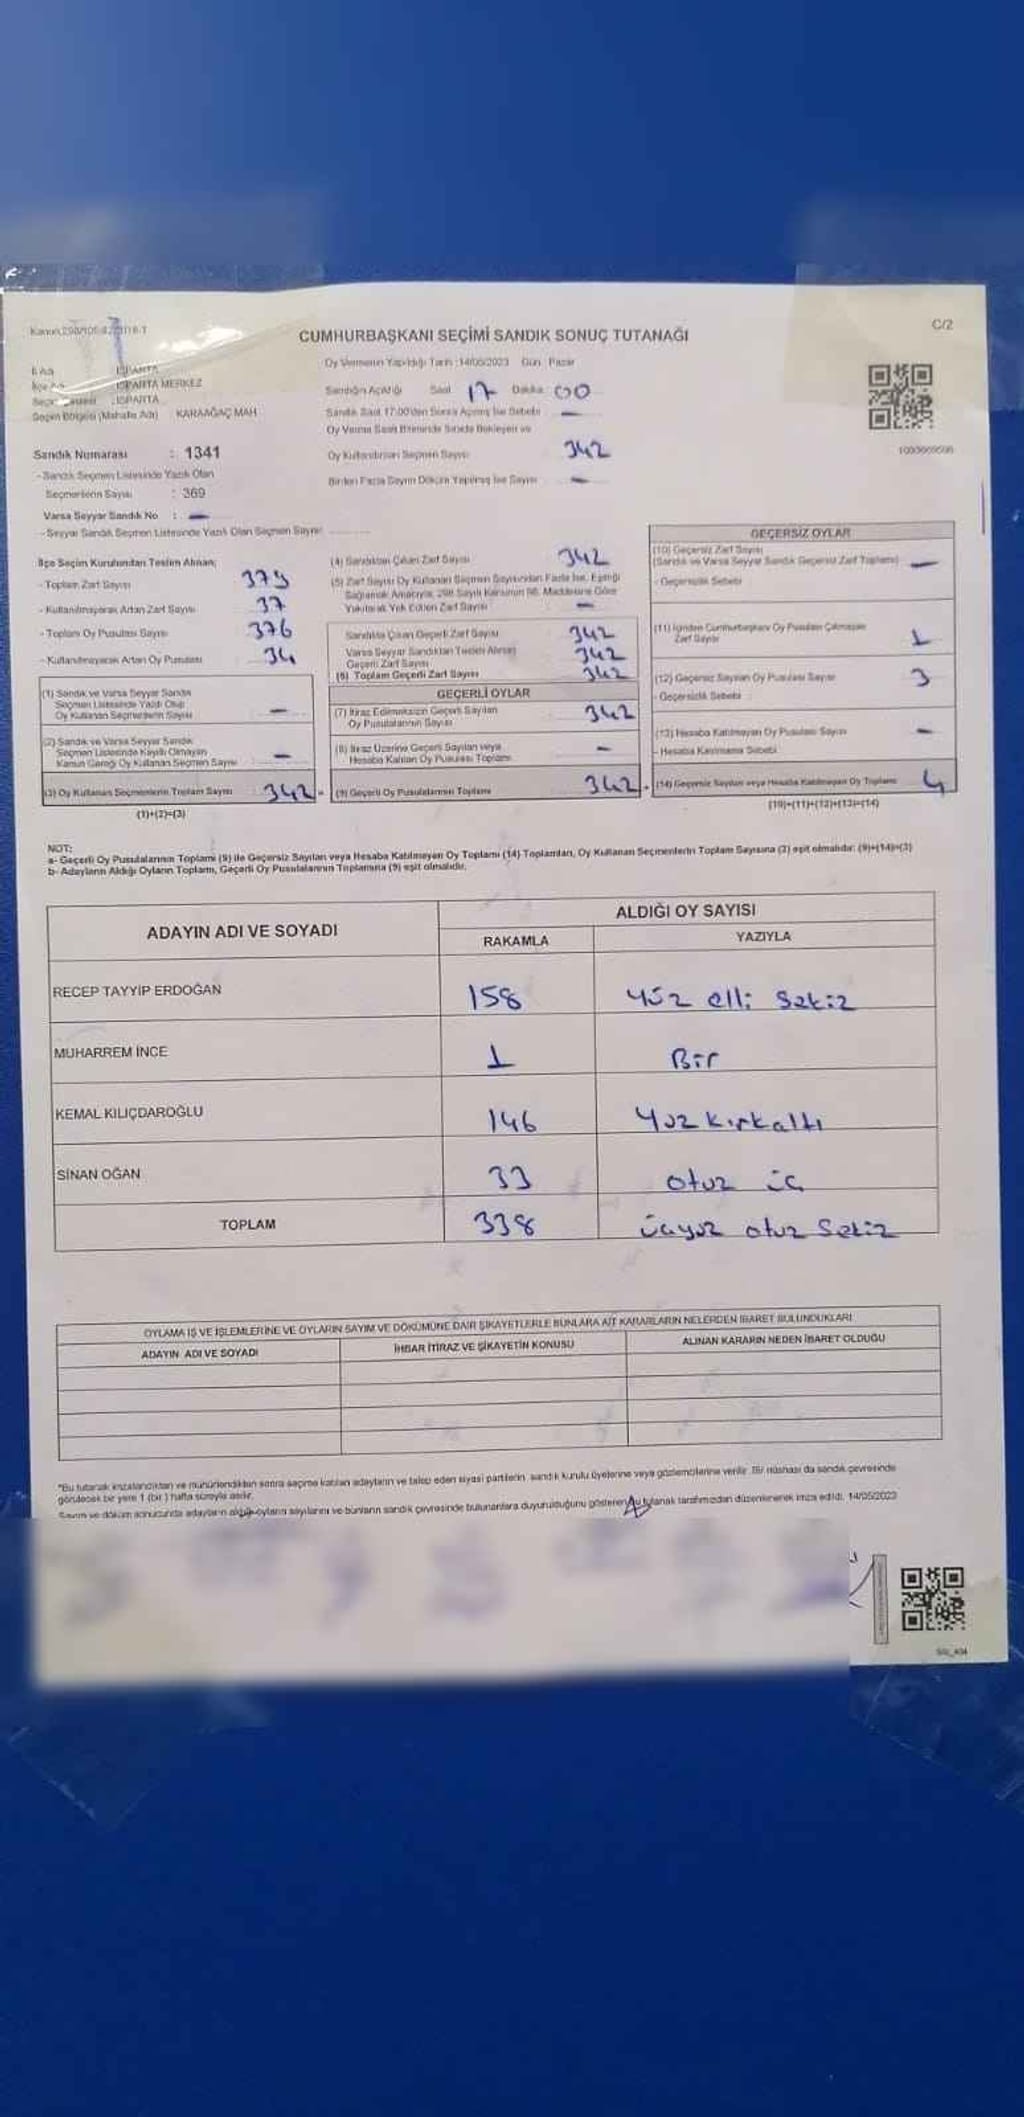 C/2
CUMHURBAŞKANI SEÇİMİ SANDIK SONUÇ TUTANAĞI
Oy Vermenin Yapıldığı Tarih :14/05/2023 Gün : Pazar
İl Adı : ISPARTA
ISPARTA MERKEZ
Seçim Çevresi : ISPARTA
Seçim Bölgesi (Mahalle Adı) KARAAĞAÇ MAH
Sandık Numarası : 1341
- Sandık Seçmen Listesinde Yazılı Olan
Seçmenlerin Sayısı : 369
Varsa Seyyar Sandık No : —
- Seyyar Sandık Seçmen Listesinde Yazılı Olan Seçmen Sayısı
Sandığın Açıldığı Saat 17 Dakika 00
Sandık Saat 17:00'den Sonra Açılmış İse Sebebi —
Oy Verme Saati Bitiminde Sırada Bekleyen ve
Oy Kullandırılan Seçmen Sayısı 342
Birden Fazla Sayım Döküm Yapılmış İse Sayısı —
İlçe Seçim Kurulundan Teslim Alınan;
- Toplam Zarf Sayısı 379
- Kullanılmayarak Artan Zarf Sayısı 37
- Toplam Oy Pusulası Sayısı 376
- Kullanılmayarak Artan Oy Pusulası 34
(1) Sandık ve Varsa Seyyar Sandık
Seçmen Listesinde Yazılı Olup
Oy Kullanan Seçmenlerin Sayısı —
(2) Sandık ve Varsa Seyyar Sandık
Seçmen Listesinde Kayıtlı Olmayan
Kanun Gereği Oy Kullanan Seçmen Sayısı —
(3) Oy Kullanan Seçmenlerin Toplam Sayısı 342
(1)+(2)=(3)
(4) Sandıktan Çıkan Zarf Sayısı 342
(5) Zarf Sayısı Oy Kullanan Seçmen Sayısından Fazla İse, Eşitliği
Sağlamak Amacıyla, 298 Sayılı Kanunun 98. Maddesine Göre
Yakılarak Yok Edilen Zarf Sayısı —
Sandıkta Çıkan Geçerli Zarf Sayısı 342
Varsa Seyyar Sandıktan Teslim Alınan
Geçerli Zarf Sayısı 342
(6) Toplam Geçerli Zarf Sayısı 342
GEÇERLİ OYLAR
(7) İtiraz Edilmeksizin Geçerli Sayılan
Oy Pusulalarının Sayısı 342
(8) İtiraz Üzerine Geçerli Sayılan veya
Hesaba Katılan Oy Pusulası Toplamı —
(9) Geçerli Oy Pusulalarının Toplamı 342
GEÇERSİZ OYLAR
(10) Geçersiz Zarf Sayısı
(Sandık ve Varsa Seyyar Sandık Geçersiz Zarf Toplamı) —
- Geçersizlik Sebebi
(11) İçinden Cumhurbaşkanı Oy Pusulası Çıkmayan
Zarf Sayısı 1
(12) Geçersiz Sayılan Oy Pusulası Sayısı 3
- Geçersizlik Sebebi :
(13) Hesaba Katılmayan Oy Pusulası Sayısı —
- Hesaba Katılmama Sebebi
(14) Geçersiz Sayılan veya Hesaba Katılmayan Oy Toplamı 4
(10)+(11)+(12)+(13)=(14)
NOT:
a- Geçerli Oy Pusulalarının Toplamı (9) ile Geçersiz Sayılan veya Hesaba Katılmayan Oy Toplamı (14) Toplamları, Oy Kullanan Seçmenlerin Toplam Sayısına (3) eşit olmalıdır: (9)+(14)=(3)
b- Adayların Aldığı Oyların Toplamı, Geçerli Oy Pusulalarının Toplamına (9) eşit olmalıdır.
ADAYIN ADI VE SOYADI
ALDIĞI OY SAYISI
RAKAMLA YAZIYLA
RECEP TAYYİP ERDOĞAN 158 Yüz elli Sekiz
MUHARREM İNCE 1 Bir
KEMAL KILIÇDAROĞLU 146 Yüz kırkaltı
SİNAN OĞAN 33 otuz üç
TOPLAM 338 üçyüz otuz Sekiz
OYLAMA İŞ VE İŞLEMLERİNE VE OYLARIN SAYIM VE DÖKÜMÜNE DAİR ŞİKAYETLERLE BUNLARA AİT KARARLARIN NELERDEN İBARET BULUNDUKLARI
ADAYIN ADI VE SOYADI İHBAR İTİRAZ VE ŞİKAYETİN KONUSU ALINAN KARARIN NEDEN İBARET OLDUĞU
*Bu tutanak imzalandıktan ve mühürlendikten sonra seçime katılan adayların ve talep eden siyasi partilerin, sandık kurulu üyelerine veya gözlemcilerine verilir. Bir nüshası da sandık çevresinde
görülecek bir yere 1 (bir) hafta süreyle asılır.
Sayım ve döküm sonucunda adayların aldığı oyların sayılarını ve bunların sandık çevresinde bulunanlara duyurulduğunu gösteren bu tutanak tarafımızdan düzenlenerek imza edildi. 14/05/2023